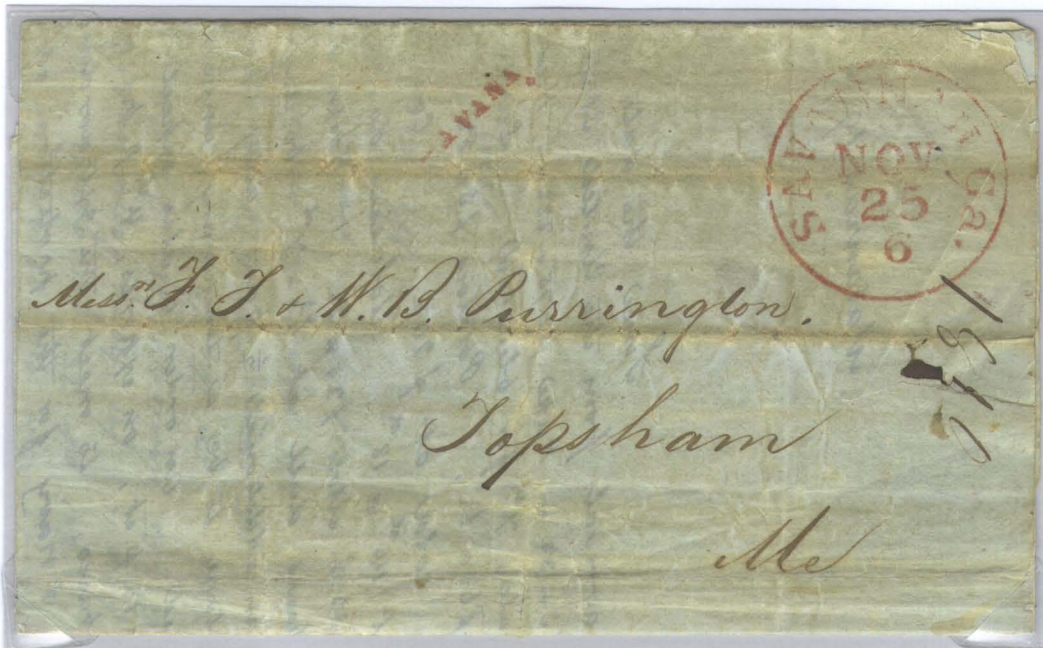 AVANA.
SAVANNAH Ga.
NOV
25
6
Messrs. F. T. & W. B. Purrington.
Topsham
Me